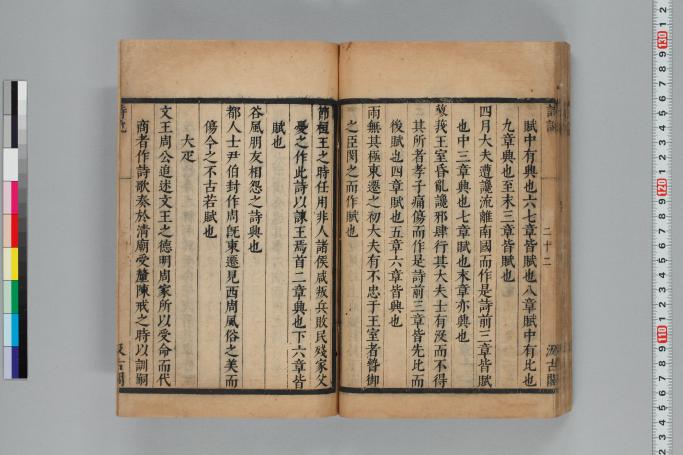 賦中有興也六七章皆賦也八章賦中有比也
九章興也至末三章皆賦也
四月大夫遭讒流離南國而作是詩前二章皆賦
也中三章興也七章賦也末章亦興也
蓼莪王室昏亂讒邪肆行其大夫士有沒而不得
其所者孝子痛傷而作是詩前三章皆先比而
後賦也四章賦也五章六章皆興也
雨無其極東遷之初大夫有不忠于王室者暬御
之臣閔之而作賦也
二十二
汲古閣
節桓王之時任用非人諸侯咸叛兵敗民殘家父
憂之作此詩以諫王焉首二章興也下六章皆
賦也
谷風朋友相怨之詩興也
都人士尹伯封作周既東遷見西周風俗之美而
傷今之不古若賦也
大疋
文王周公追述文王之德明周家所以受命而代
商者作詩歌奏於清廟受釐陳戒之時以訓嗣
汲古閣